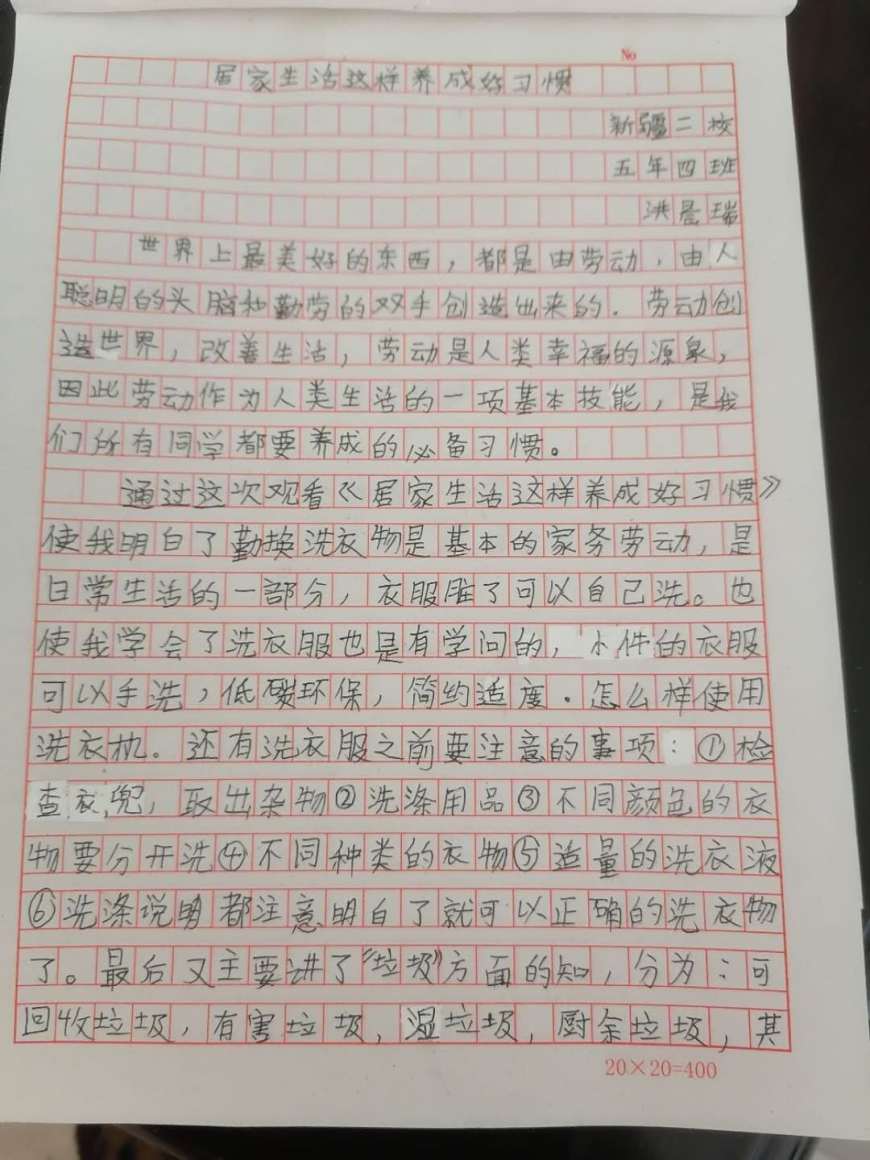 No
居家生活这样养成好习惯
新疆二校
五年四班
洪晨瑞
世界上最美好的东西，都是由劳动，由人
聪明的头脑和勤劳的双手创造出来的．劳动创
造世界，改善生活，劳动是人类幸福的源泉，
因此劳动作为人类生活的一项基本技能，是我
们所有同学都要养成的必备习惯。
通过这次观看《居家生活这样养成好习惯》
使我明白了勤换洗衣物是基本的家务劳动，是
日常生活的一部分，衣服脏了可以自己洗。也
使我学会了洗衣服也是有学问的，小件的衣服
可以手洗，低碳环保，简约适度．怎么样使用
洗衣机．还有洗衣服之前要注意的事项：①检
查衣兜，取出杂物②洗涤用品③不同颜色的衣
物要分开洗④不同种类的衣物⑤适量的洗衣液
⑥洗涤说明都注意明白了就可以正确的洗衣物
了。最后又主要讲了“垃圾”方面的知，分为：可
回收垃圾，有害垃圾，湿垃圾，厨余垃圾，其
20×20=400